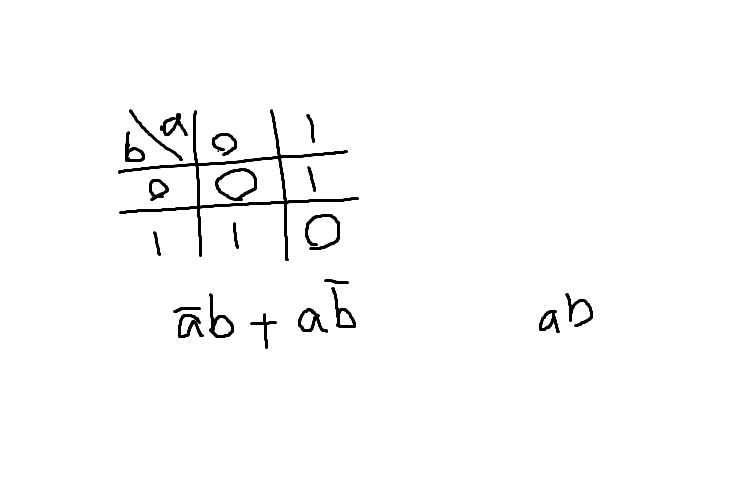 b\a 0 1
0 0 1
1 1 0
āb + ab̄ ab